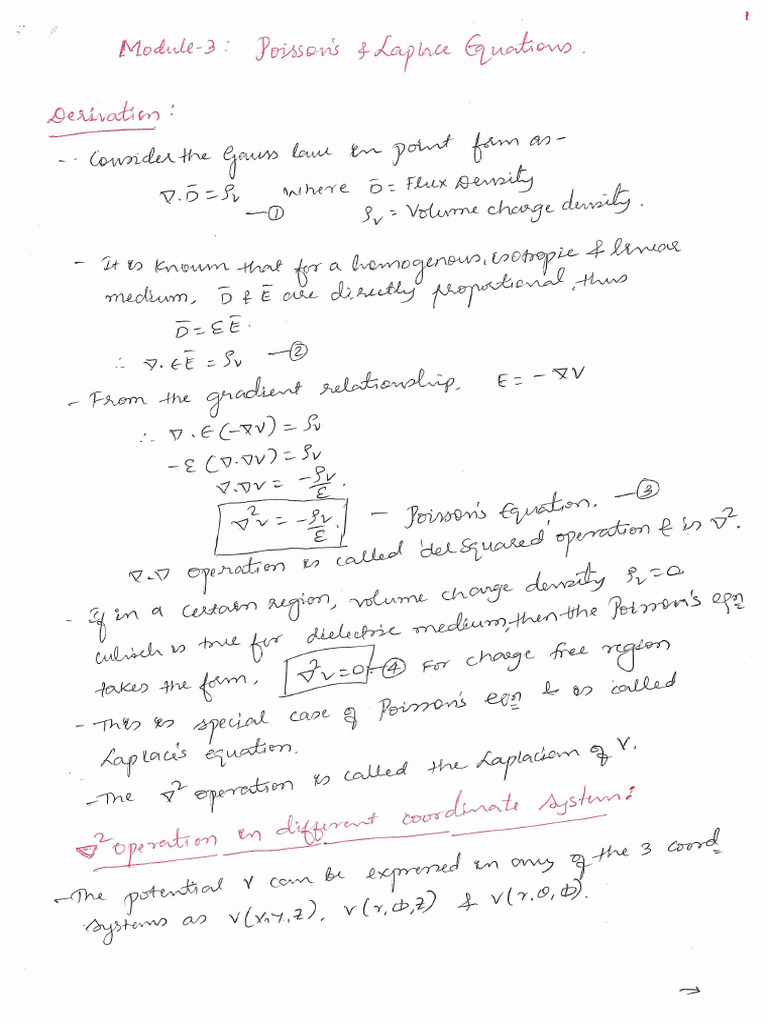 1
Module-3: Poisson's & Laplace Equations.
Derivation:
-- Consider the Gauss law in point form as -
∇.D̄ = ρv where D̄ = Flux Density
—① ρv = Volume charge density.
- It is known that for a homogenous, isotropic & linear
medium, D̄ & Ē are directly proportional, thus
D̄ = εĒ.
∴ ∇.εĒ = ρv —②
- From the gradient relationship, E = -∇V
∴ ∇.ε(-∇V) = ρv
-ε(∇.∇V) = ρv
∇.∇V = -ρv/ε.
∇²V = -ρv/ε. - Poisson's Equation. —③
∇.∇ operation is called 'del squared' operation & is ∇².
- If in a certain region, volume charge density ρv = 0
which is true for dielectric medium, then the Poisson's eqn
takes the form, ∇²V = 0 —④ For charge free region
- This is special case of Poisson's eqn & is called
Laplace's equation.
- The ∇² operation is called the Laplacian of V.
∇² operation in different coordinate system:
- The potential V can be expressed in any of the 3 coord
systems as V(x,y,z), V(r,Φ,z) & V(r,θ,Φ).
→